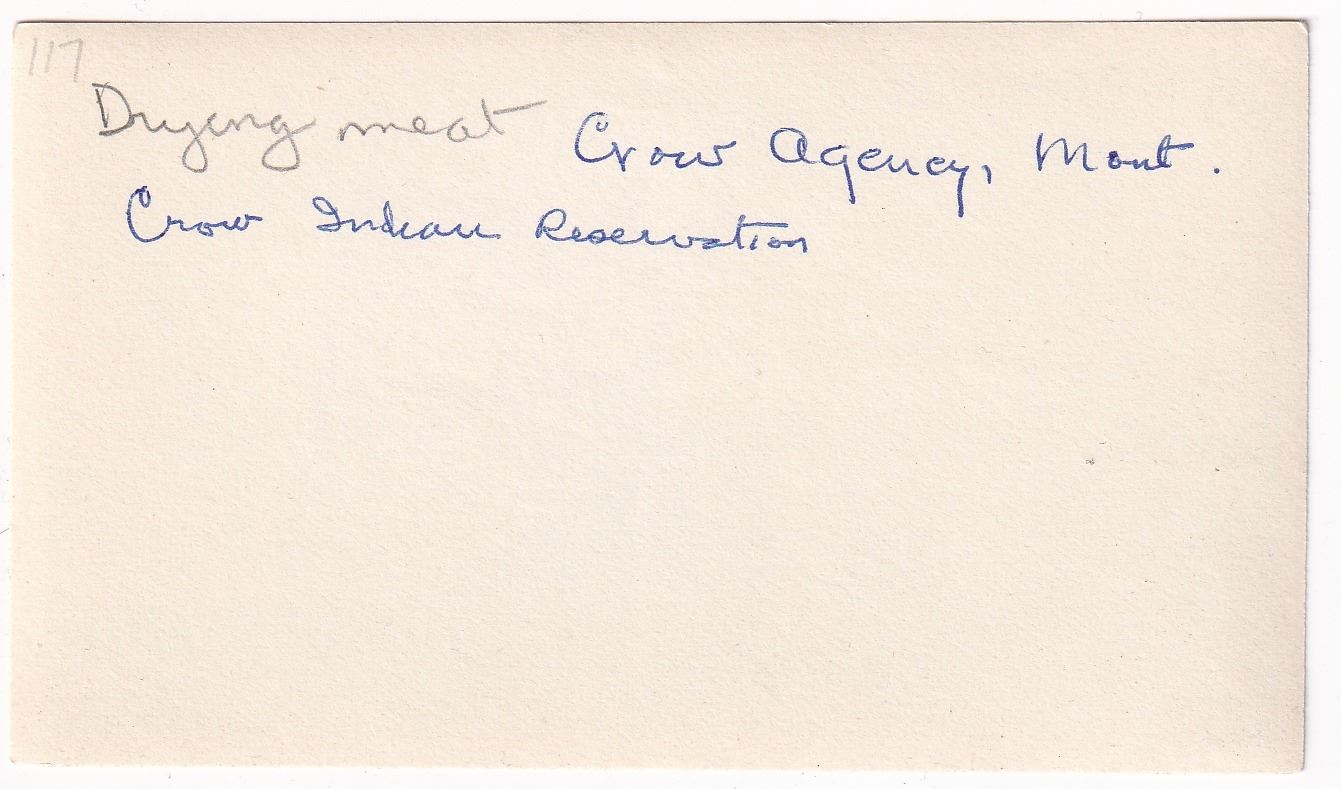 117
Drying meat Crow Agency, Mont.
Crow Indian Reservation